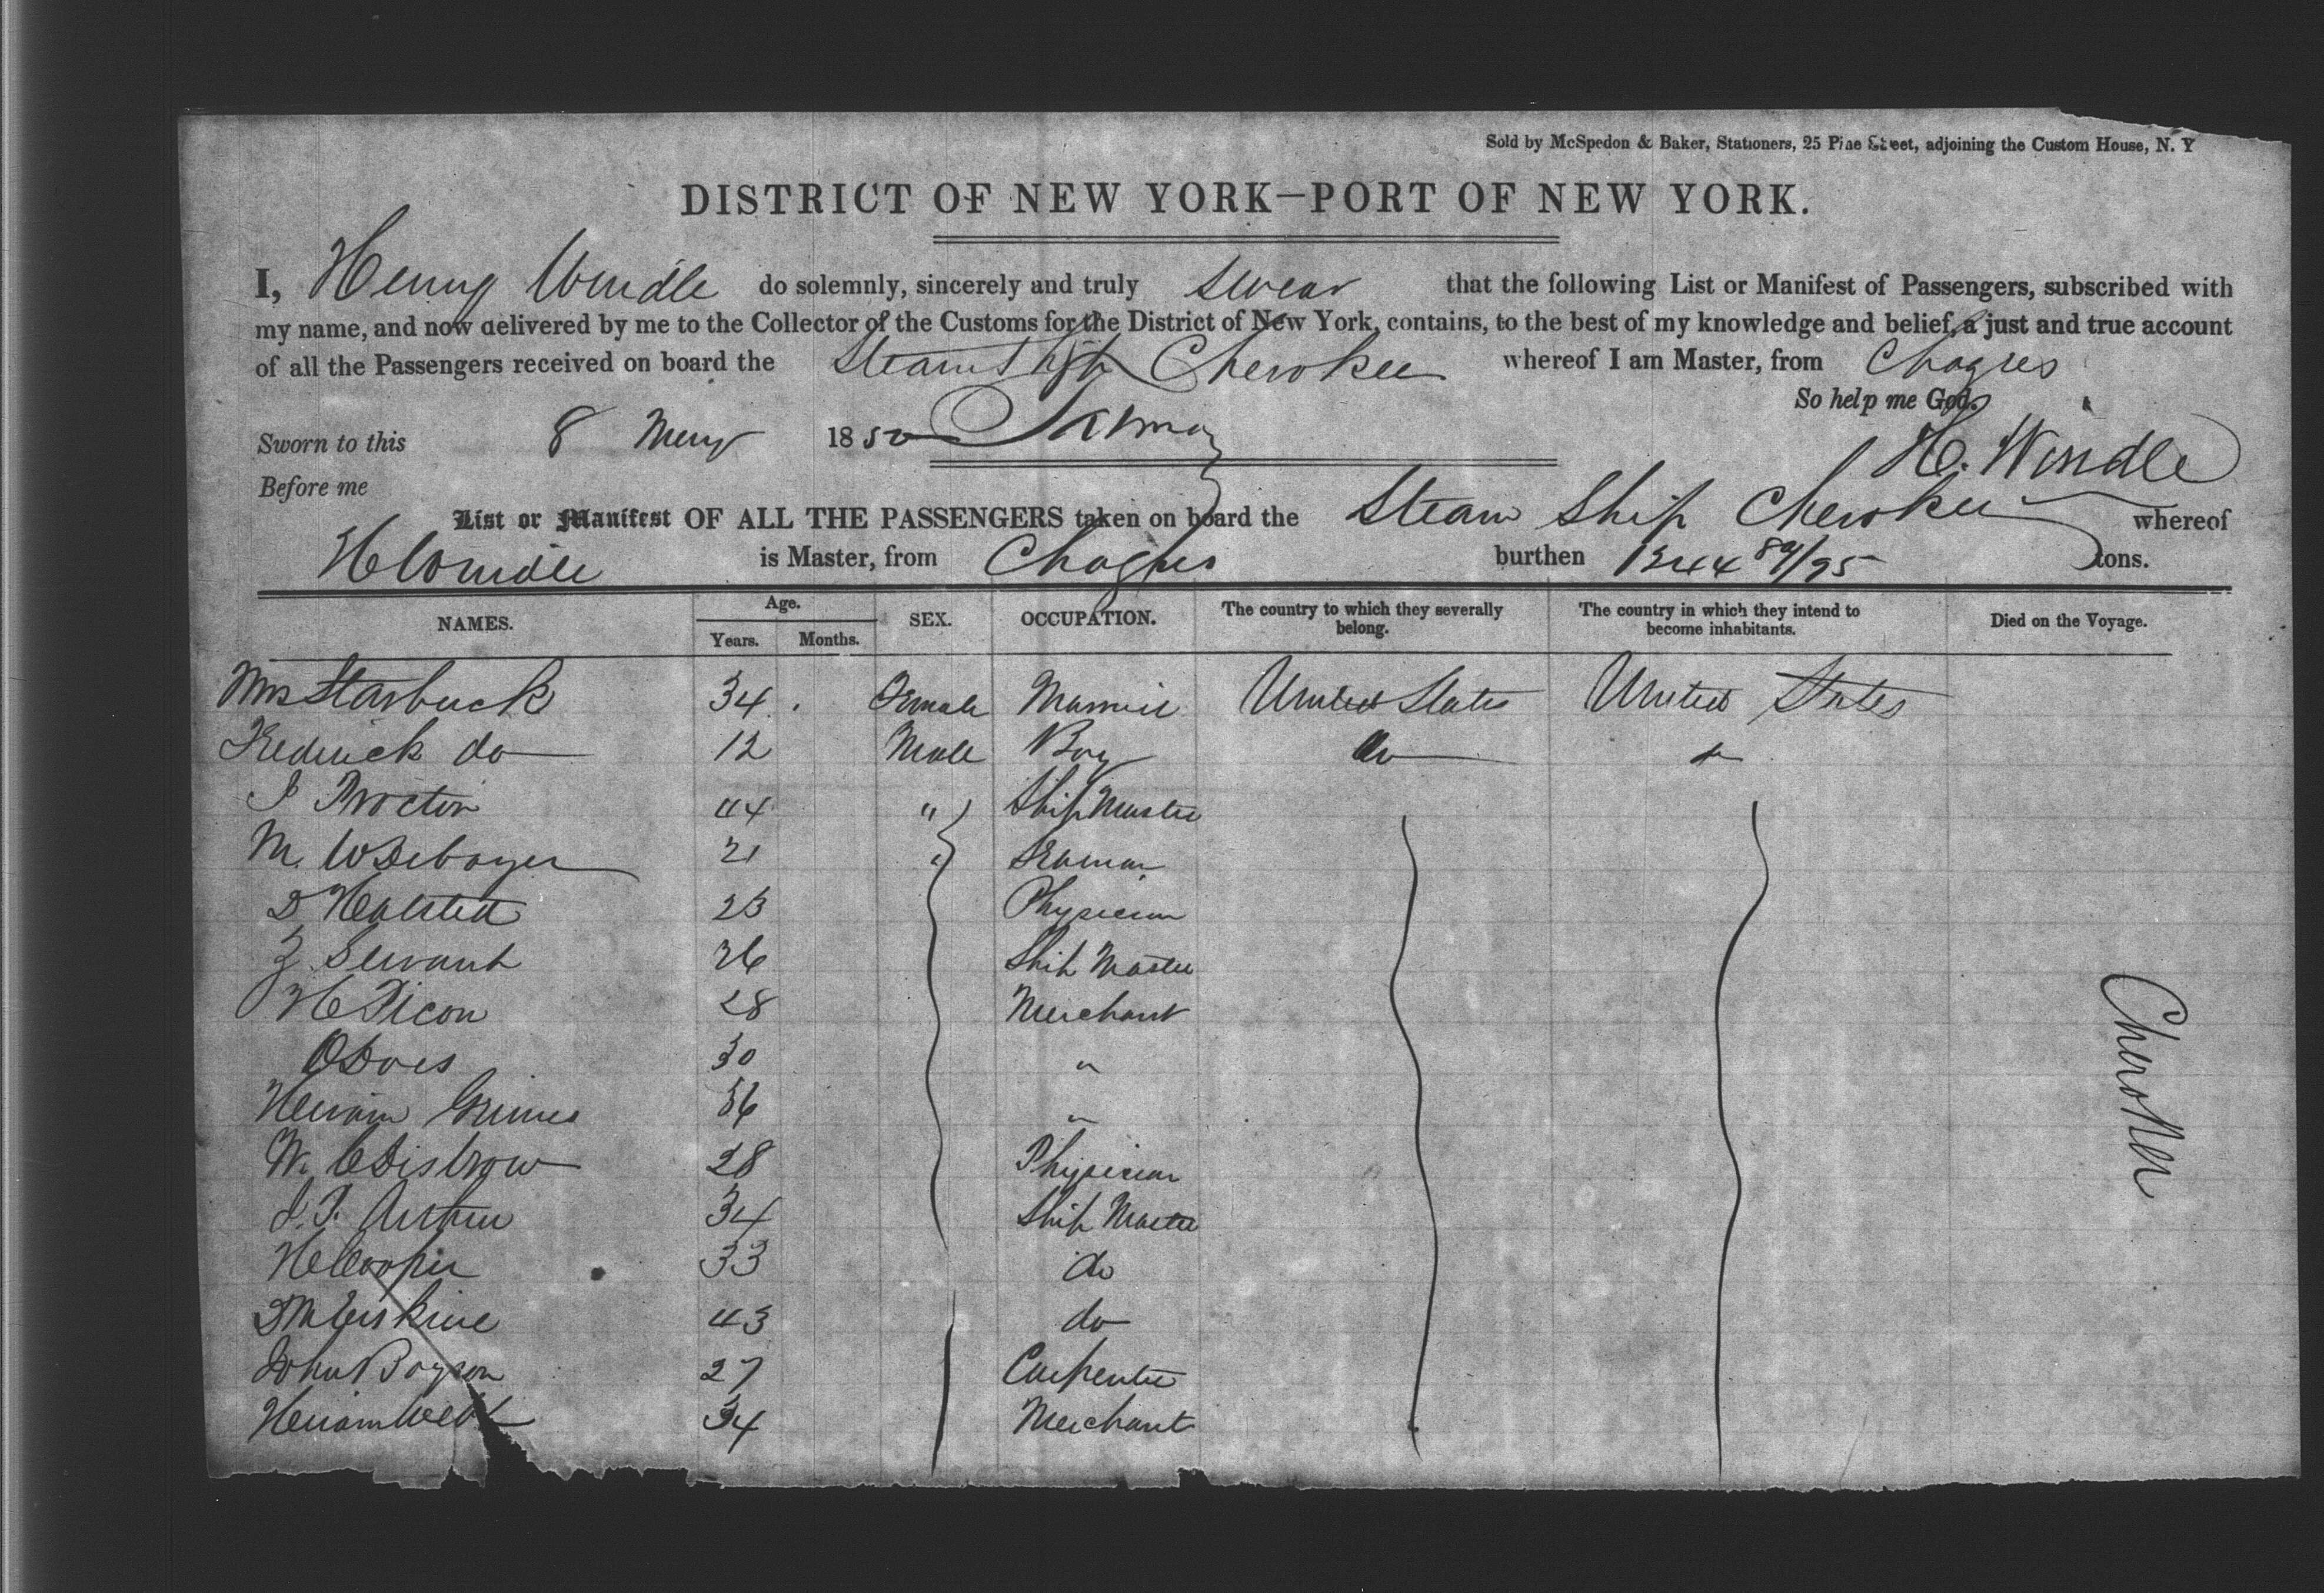 Sold by McSpedon & Baker, Stationers, 25 Pine Street, adjoining the Custom House, N. Y
DISTRICT OF NEW YORK—PORT OF NEW YORK.
I, Henry Windle do solemnly, sincerely and truly swear that the following List or Manifest of Passengers, subscribed with
my name, and now delivered by me to the Collector of the Customs for the District of New York, contains, to the best of my knowledge and belief, a just and true account
of all the Passengers received on board the Steam Ship Cherokee whereof I am Master, from Chagres
So help me God.
Sworn to this 8 May 1850
H. Windle
Before me
List or Manifest OF ALL THE PASSENGERS taken on board the Steam Ship Cherokee whereof
H Windle is Master, from Chagres burthen 1244 89/95 tons.
NAMES. Age. Years. Months. SEX. OCCUPATION. The country to which they severally belong. The country in which they intend to become inhabitants. Died on the Voyage.
Mrs Starbuck 34 Female Married United States United States
Frederick do 12 Male Boy do do
J Proctor 44 " Ship Master
M. W 21 " Seaman
D Halsted 23 Physician
Z Servant 26 Ship Master
H Dicon 28 Merchant
30 "
Hiram Grimes 36 "
W. C Disbrow 28 Physician
J. T. Arthur 34 Ship Master
H Cooper 33 do
Erskine 43 do
John Boyson 27 Carpenter
Hiram Webb 34 Merchant
Cherokee